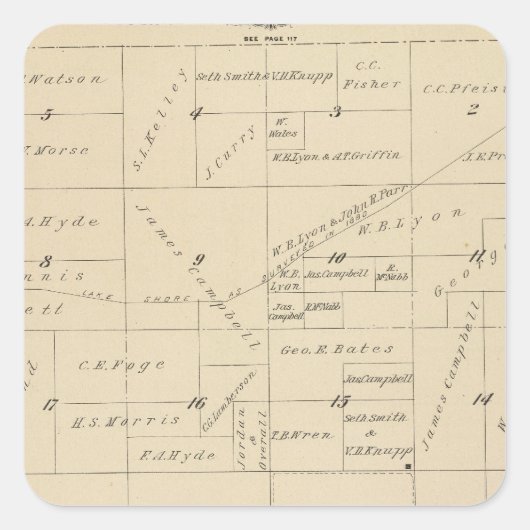 SEE PAGE 117
Watson
5
Morse
S.L. Kelley
4
Seth Smith & V.D. Knupp
J. Curry
W.
Wales
3
C.C.
Fisher
W.B. Lyon & A.T. Griffin
C.C. Pfeis
2
J.E. Pr
A. Hyde
8
nnis
ett
James Campbell
9
LAKE SHORE AS SURVEYED IN 1880
W.B. Lyon & John R. Parr
W.B. Lyon
10
W.B.
Lyon
Jas. Campbell
R.
McNabb
Jas.
Campbell
R. McNabb
11
Georg
d
17
C.E. Foge
H.S. Morris
F.A. Hyde
16
C.G. Lamberson
Jordan
&
Overall
Geo. E. Bates
Jas. Campbell
15
T.B. Wren
Seth Smith
&
V.D. Knupp
James Campbell
14
W